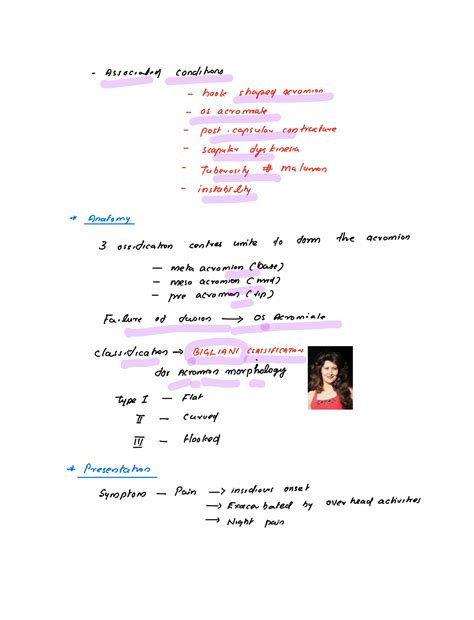 - Associated conditions
- hook shaped acromion
- os acromiale
- post. capsular contracture
- scapular dyskinesia
- Tuberosity # malunion
- instability
* Anatomy
3 ossification centres unite to form the acromion
- meta acromion (base)
- meso acromion (mid)
- pre acromion (tip)
Failure of fusion → OS Acromiale
classification → BIGLIANI CLASSIFICATION
for Acromion morphology
Type I - Flat
II - Curved
III - Hooked
* Presentation
Symptoms - Pain → insidious onset
→ Exacerbated by overhead activities
→ Night pain